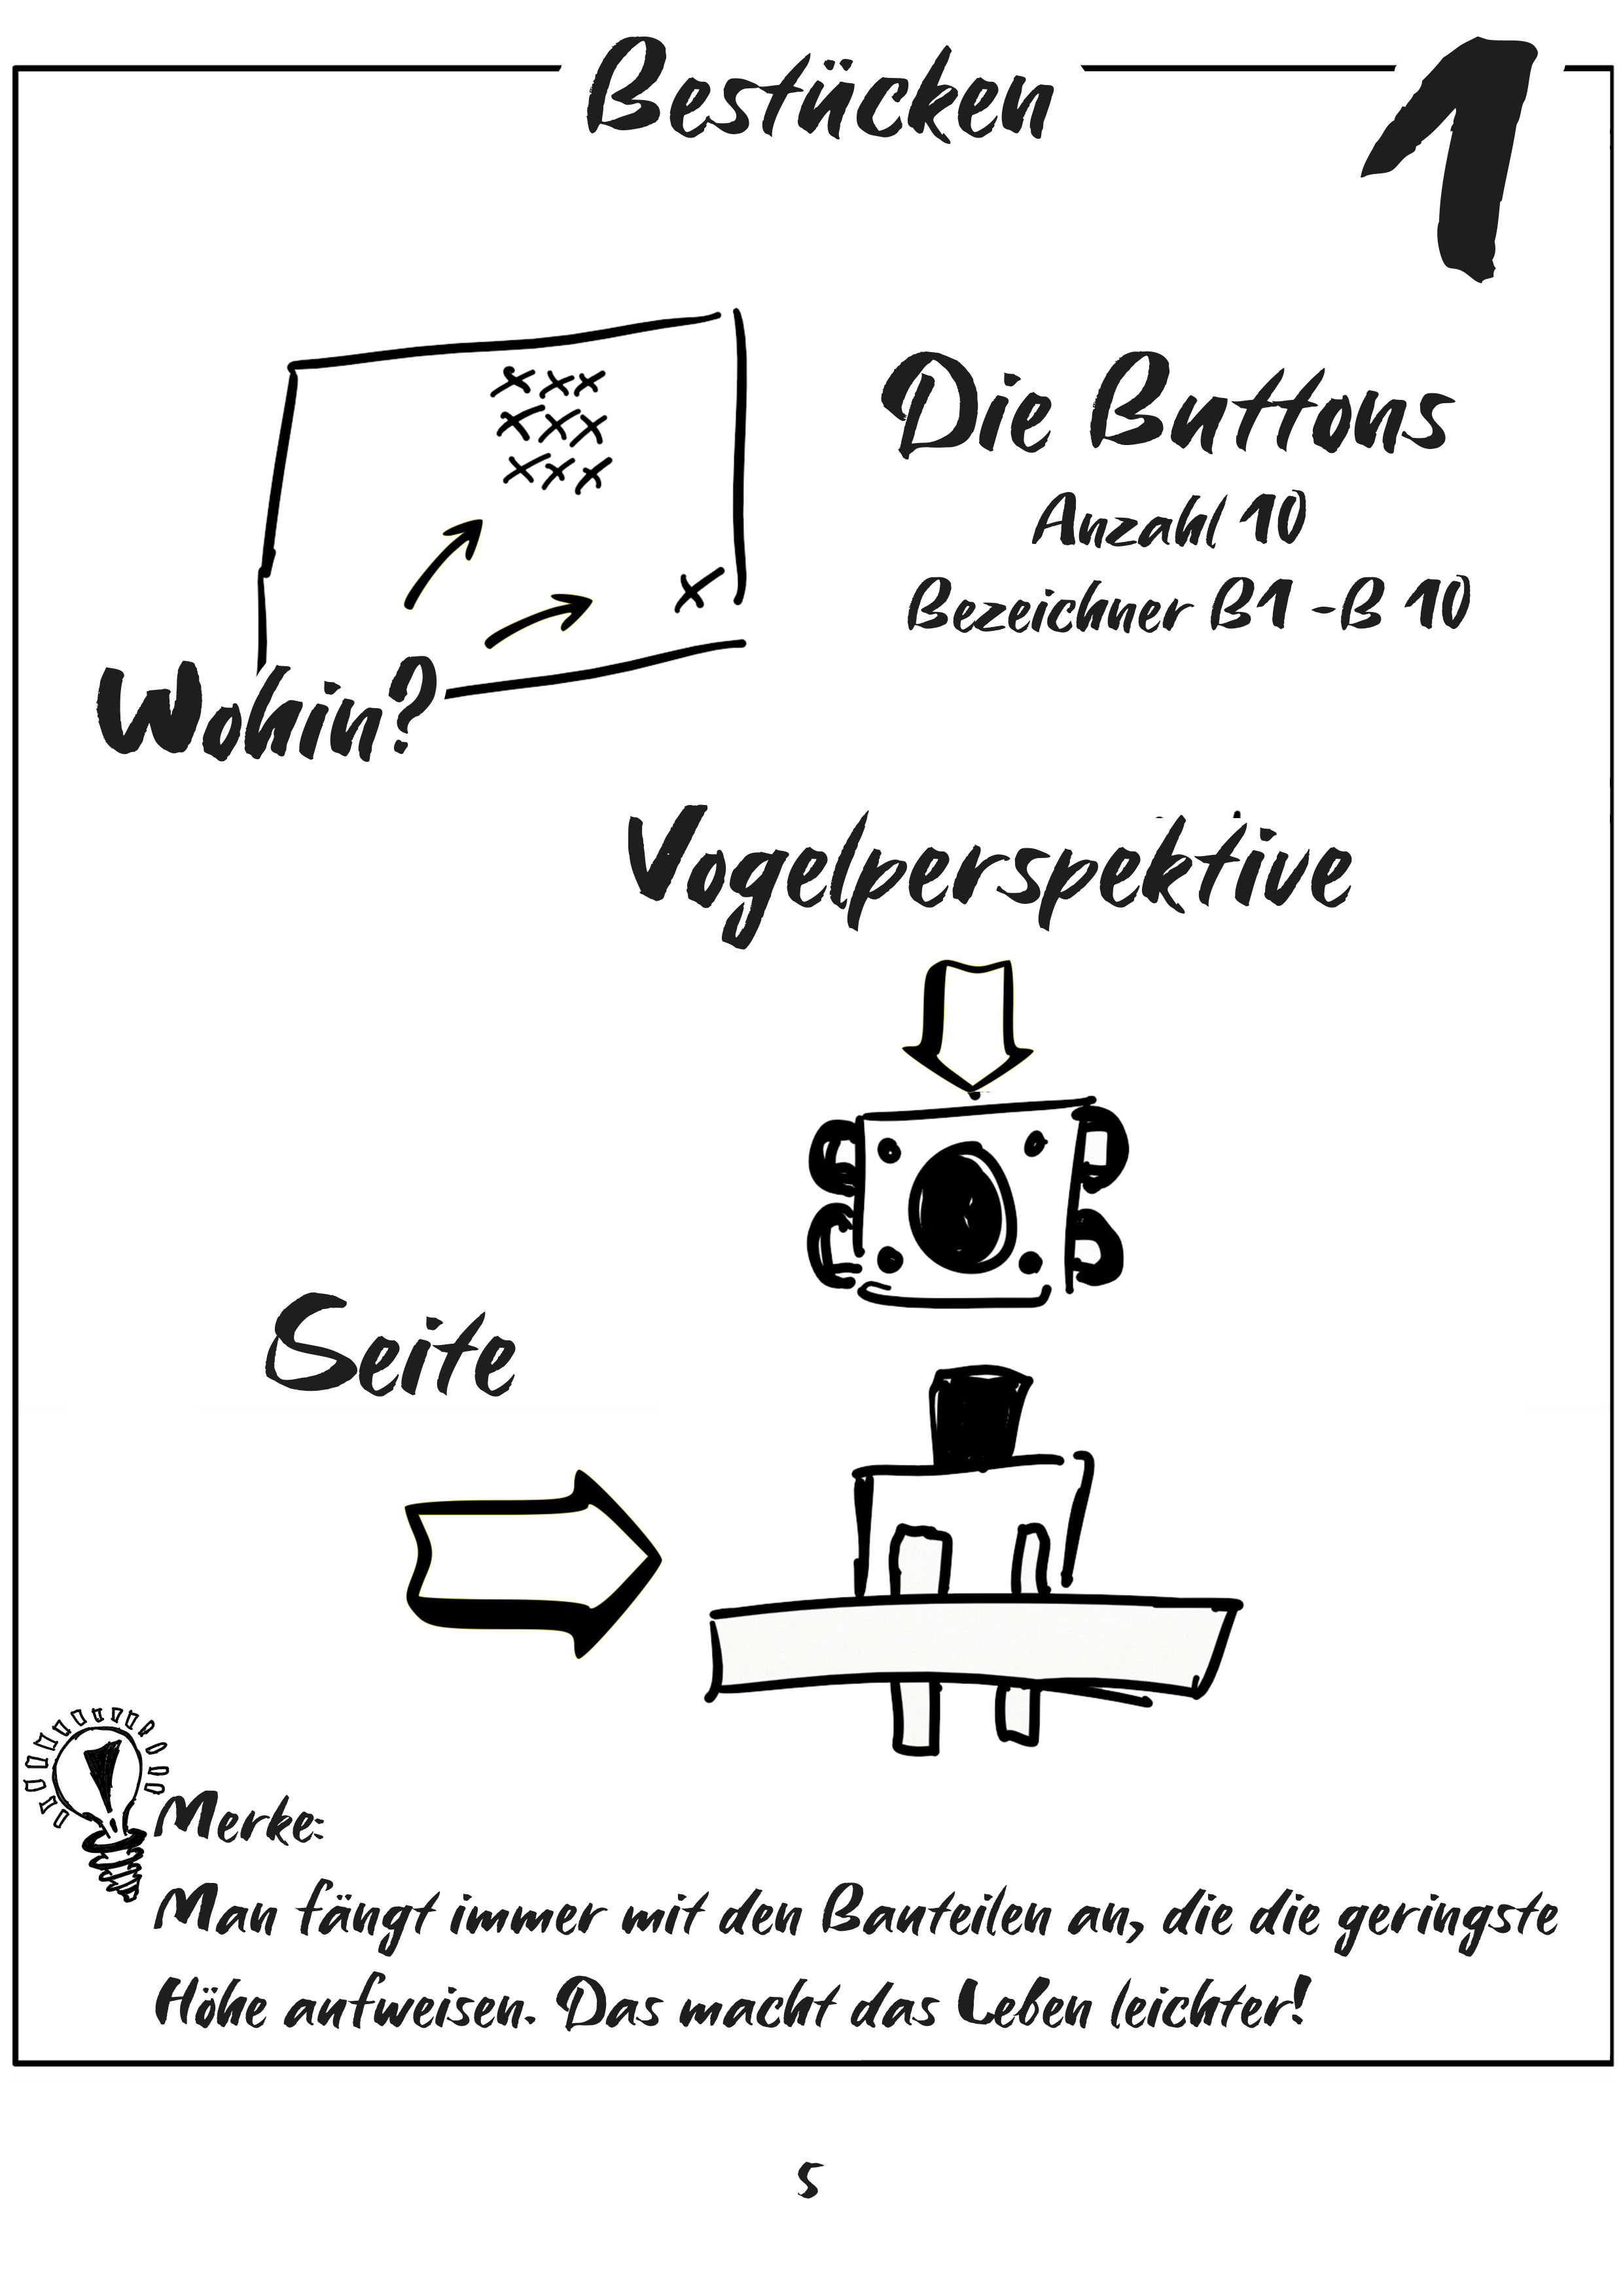 Bestücken
1
Die Buttons
Anzahl 10
Bezeichner B1 -B 10
Wohin?
Vogelperspektive
Seite
Merke:
Man fängt immer mit den Bauteilen an, die die geringste
Höhe aufweisen. Das macht das Leben leichter!
5